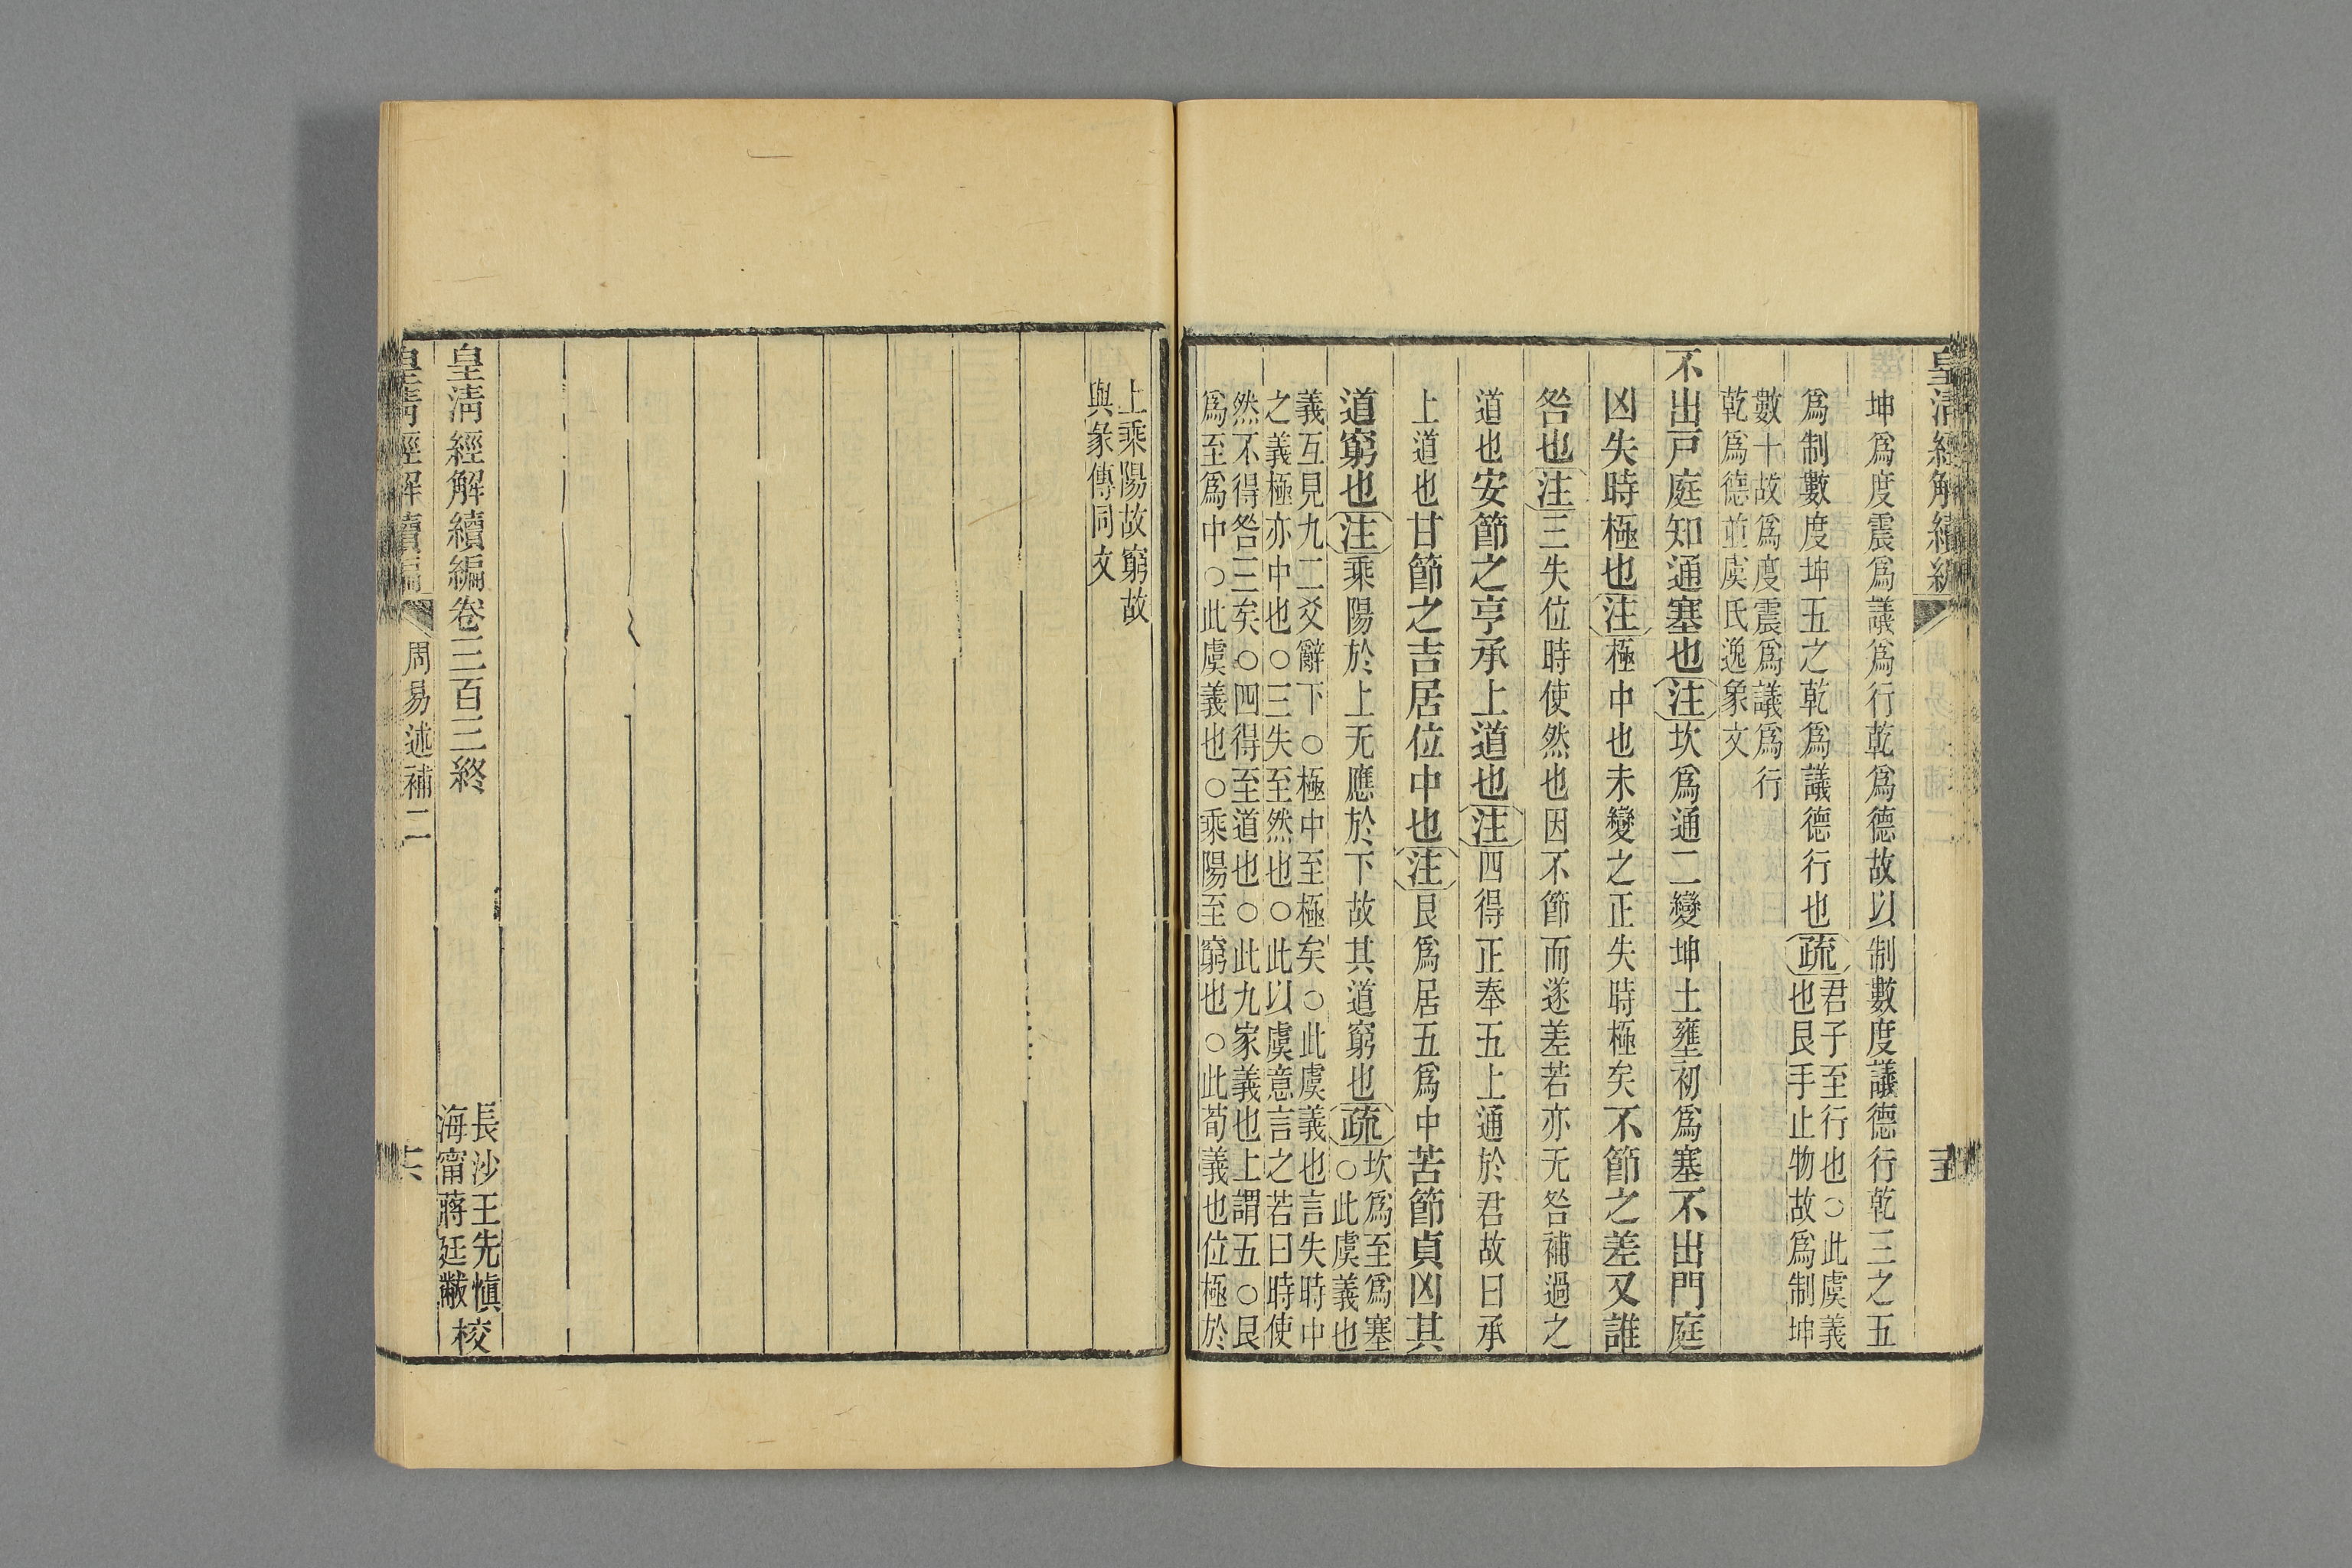 皇清經解續編
坤爲度震爲議爲行乾爲德故以制數度議德行乾三之五
爲制數度坤五之乾爲議德行也疏君子至行也○此虞義
也艮手止物故爲制坤
數十故爲度震爲議爲行
乾爲德並虞氏逸象文
不出戸庭知通塞也注坎爲通二變坤土壅初爲塞不出門庭
凶失時極也注極中也未變之正失時極矣不節之差又誰
咎也注三失位時使然也因不節而遂差若亦无咎補過之
道也安節之亨承上道也注四得正奉五上通於君故曰承
上道也甘節之吉居位中也注艮爲居五爲中苦節貞凶其
道窮也注乘陽於上无應於下故其道窮也疏坎爲至爲塞
○此虞義也
義互見九二爻辭下○極中至極矣○此虞義也言失時中
之義極亦中也○三失至然也○此以虞意言之若曰時使
然不得咎三矣○四得至道也○此九家義也上謂五○艮
爲至爲中○此虞義也○乘陽至窮也○此荀義也位極於
上乘陽故窮故
與彖傳同文
皇清經解續編卷三百三終
長沙王先愼
海甯蔣廷黻
校
皇清經解續編
周易述補二